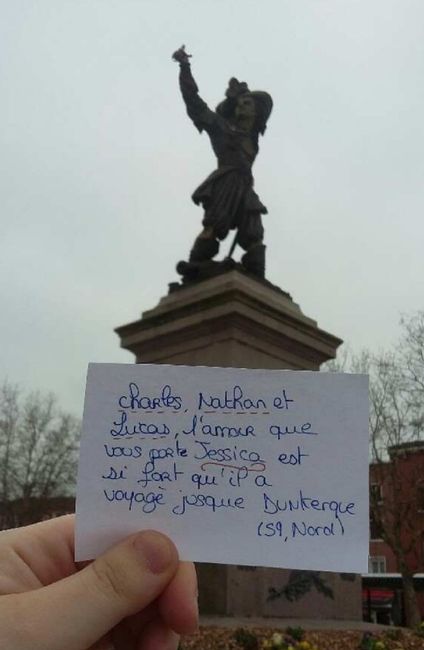 Charles, Nathan et
Lucas, l'amour que
vous porte Jessica est
si fort qu'il a
voyagé jusque Dunkerque
(59, Nord)